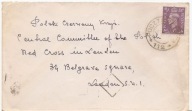 Polski Czerwony Krzyż
Central Committee of the
Red Cross in London
34 Belgrave Square,
London S.W.1.